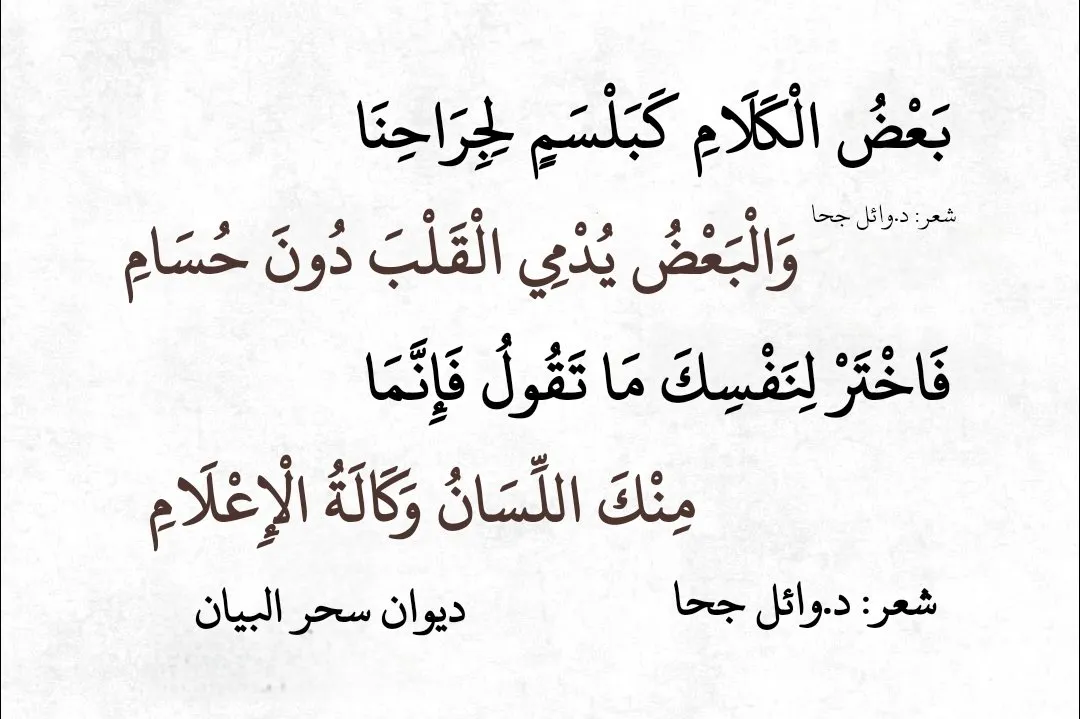 بَعْضُ الْكَلَامِ كَبَلْسَمٍ لِجِرَاحِنَا
شعر: د.وائل جحا
وَالْبَعْضُ يُدْمِي الْقَلْبَ دُونَ حُسَامِ
فَاخْتَرْ لِنَفْسِكَ مَا تَقُولُ فَإِنَّمَا
مِنْكَ اللِّسَانُ وَكَالَةُ الْإِعْلَامِ
شعر: د.وائل جحا
ديوان سحر البيان